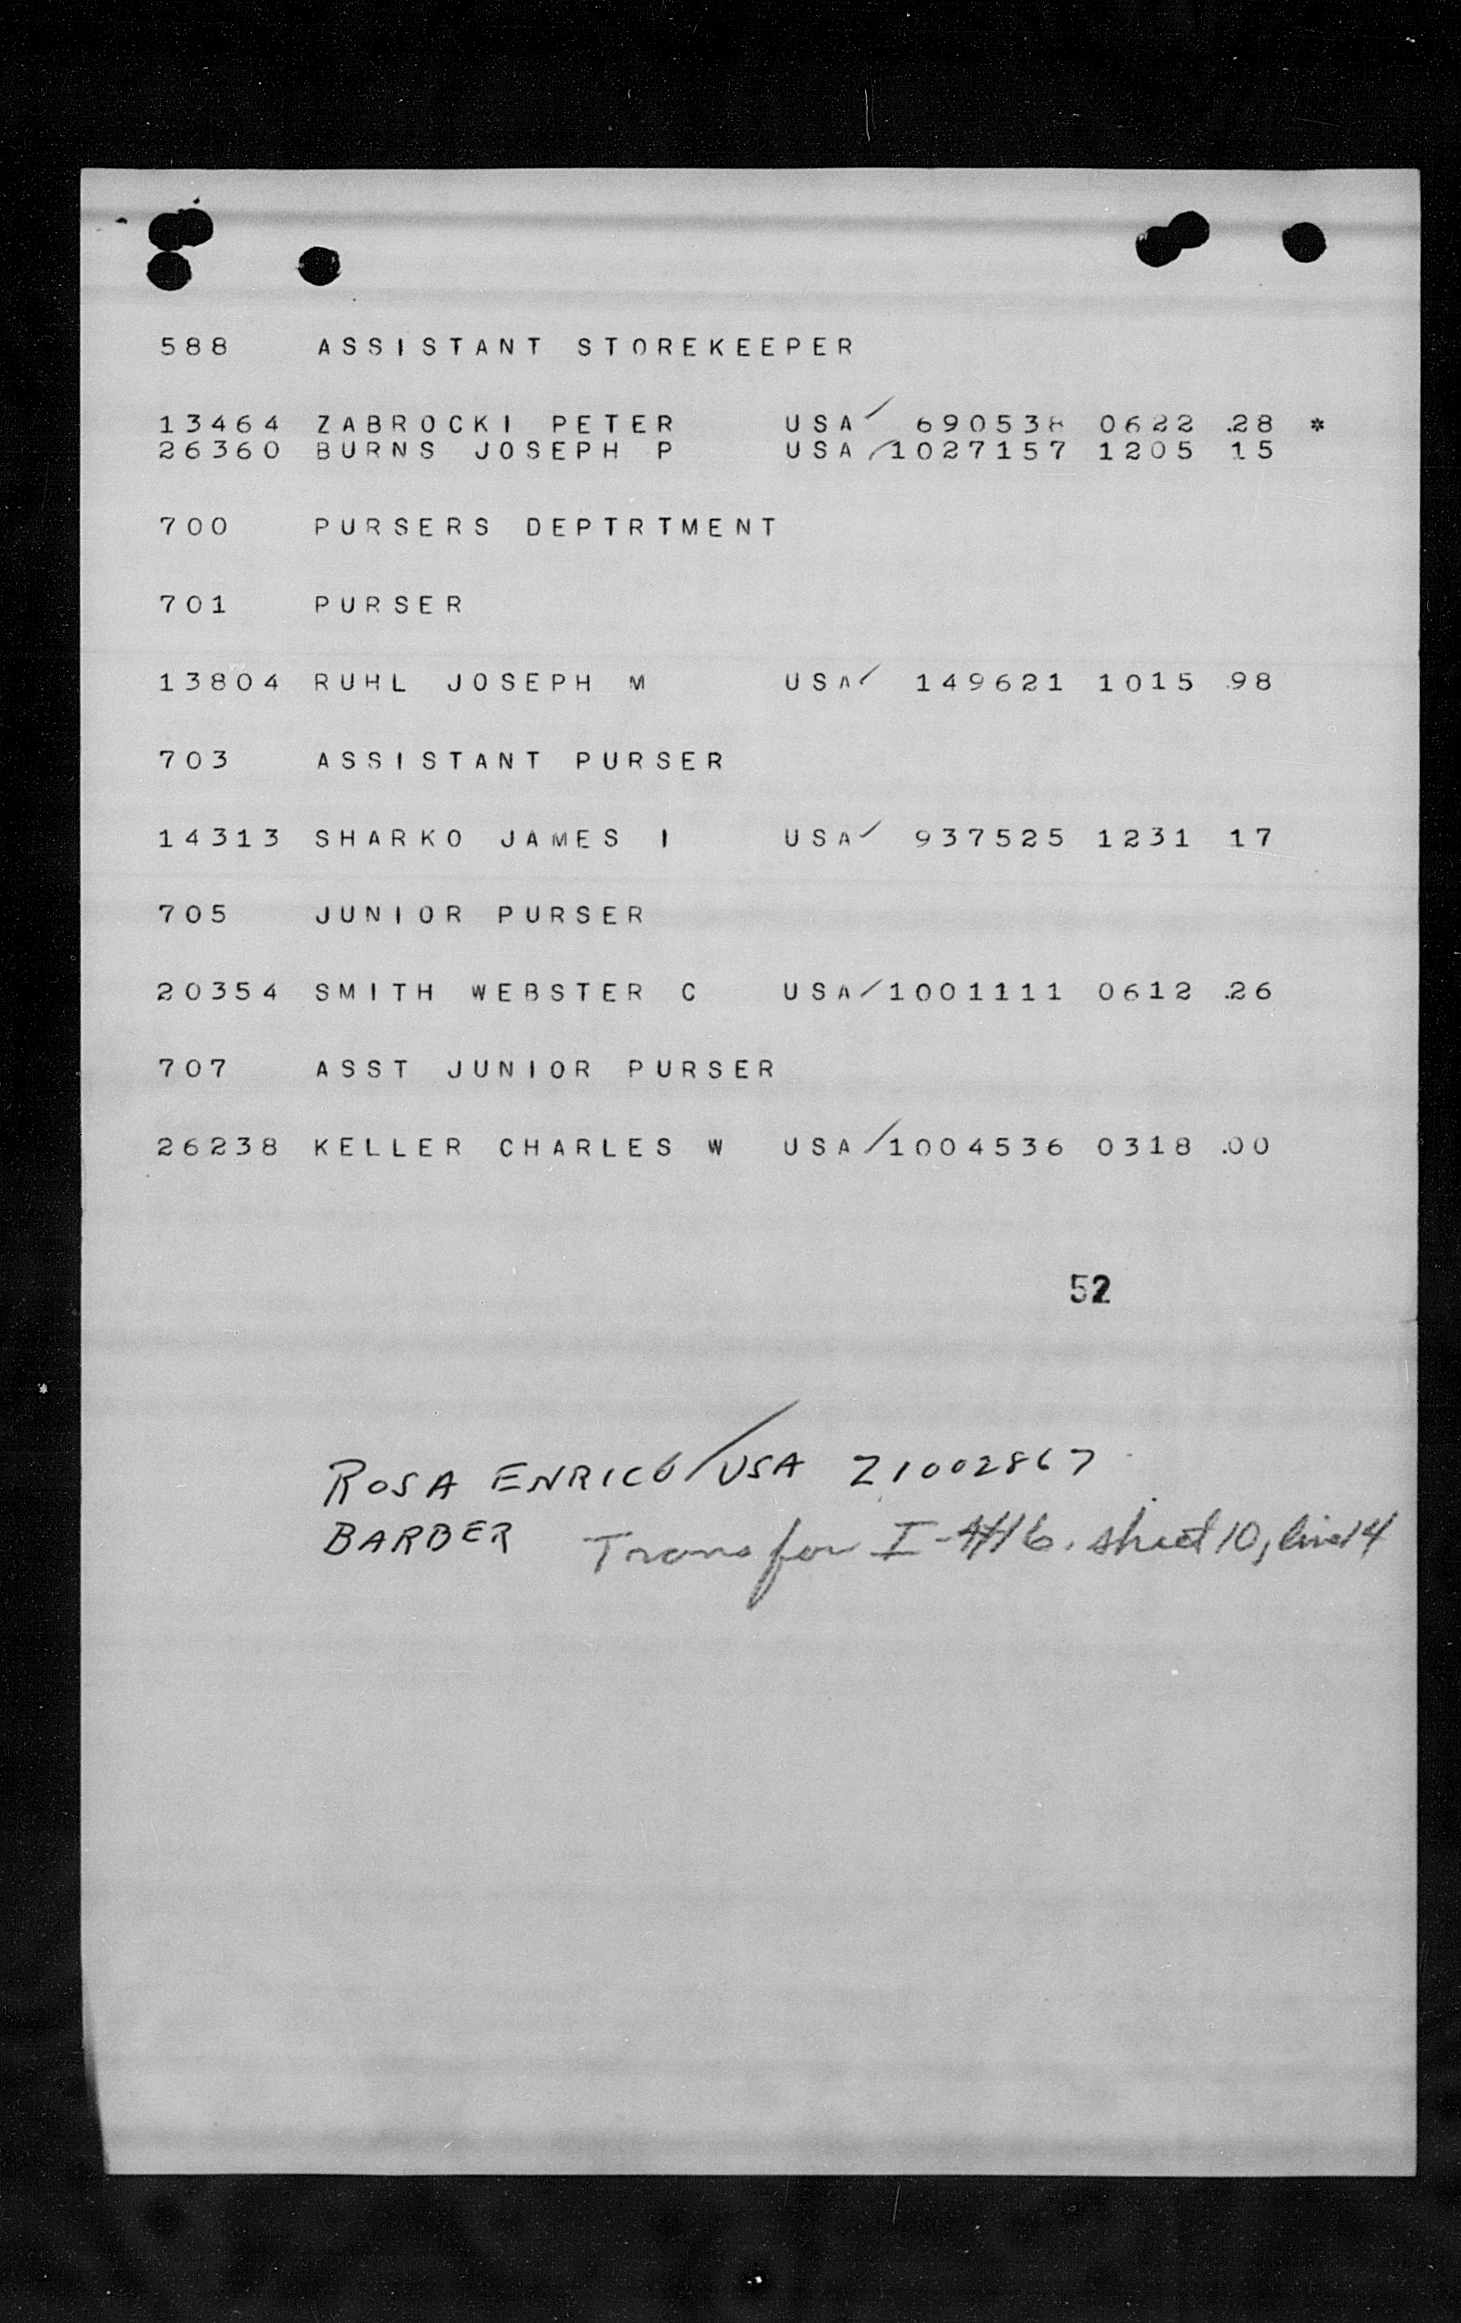 588 ASSISTANT STOREKEEPER
13464 ZABROCKI PETER USA 690538 0622 28 *
26360 BURNS JOSEPH P USA 1027157 1205 15
700 PURSERS DEPTRTMENT
701 PURSER
13804 RUHL JOSEPH M USA 149621 1015 98
703 ASSISTANT PURSER
14313 SHARKO JAMES I USA 937525 1231 17
705 JUNIOR PURSER
20354 SMITH WEBSTER C USA 1001111 0612 26
707 ASST JUNIOR PURSER
26238 KELLER CHARLES W USA 1004536 0318 00
52
ROSA ENRICO USA Z1002867
BARBER Trans for I-416. sheet 10, line 14